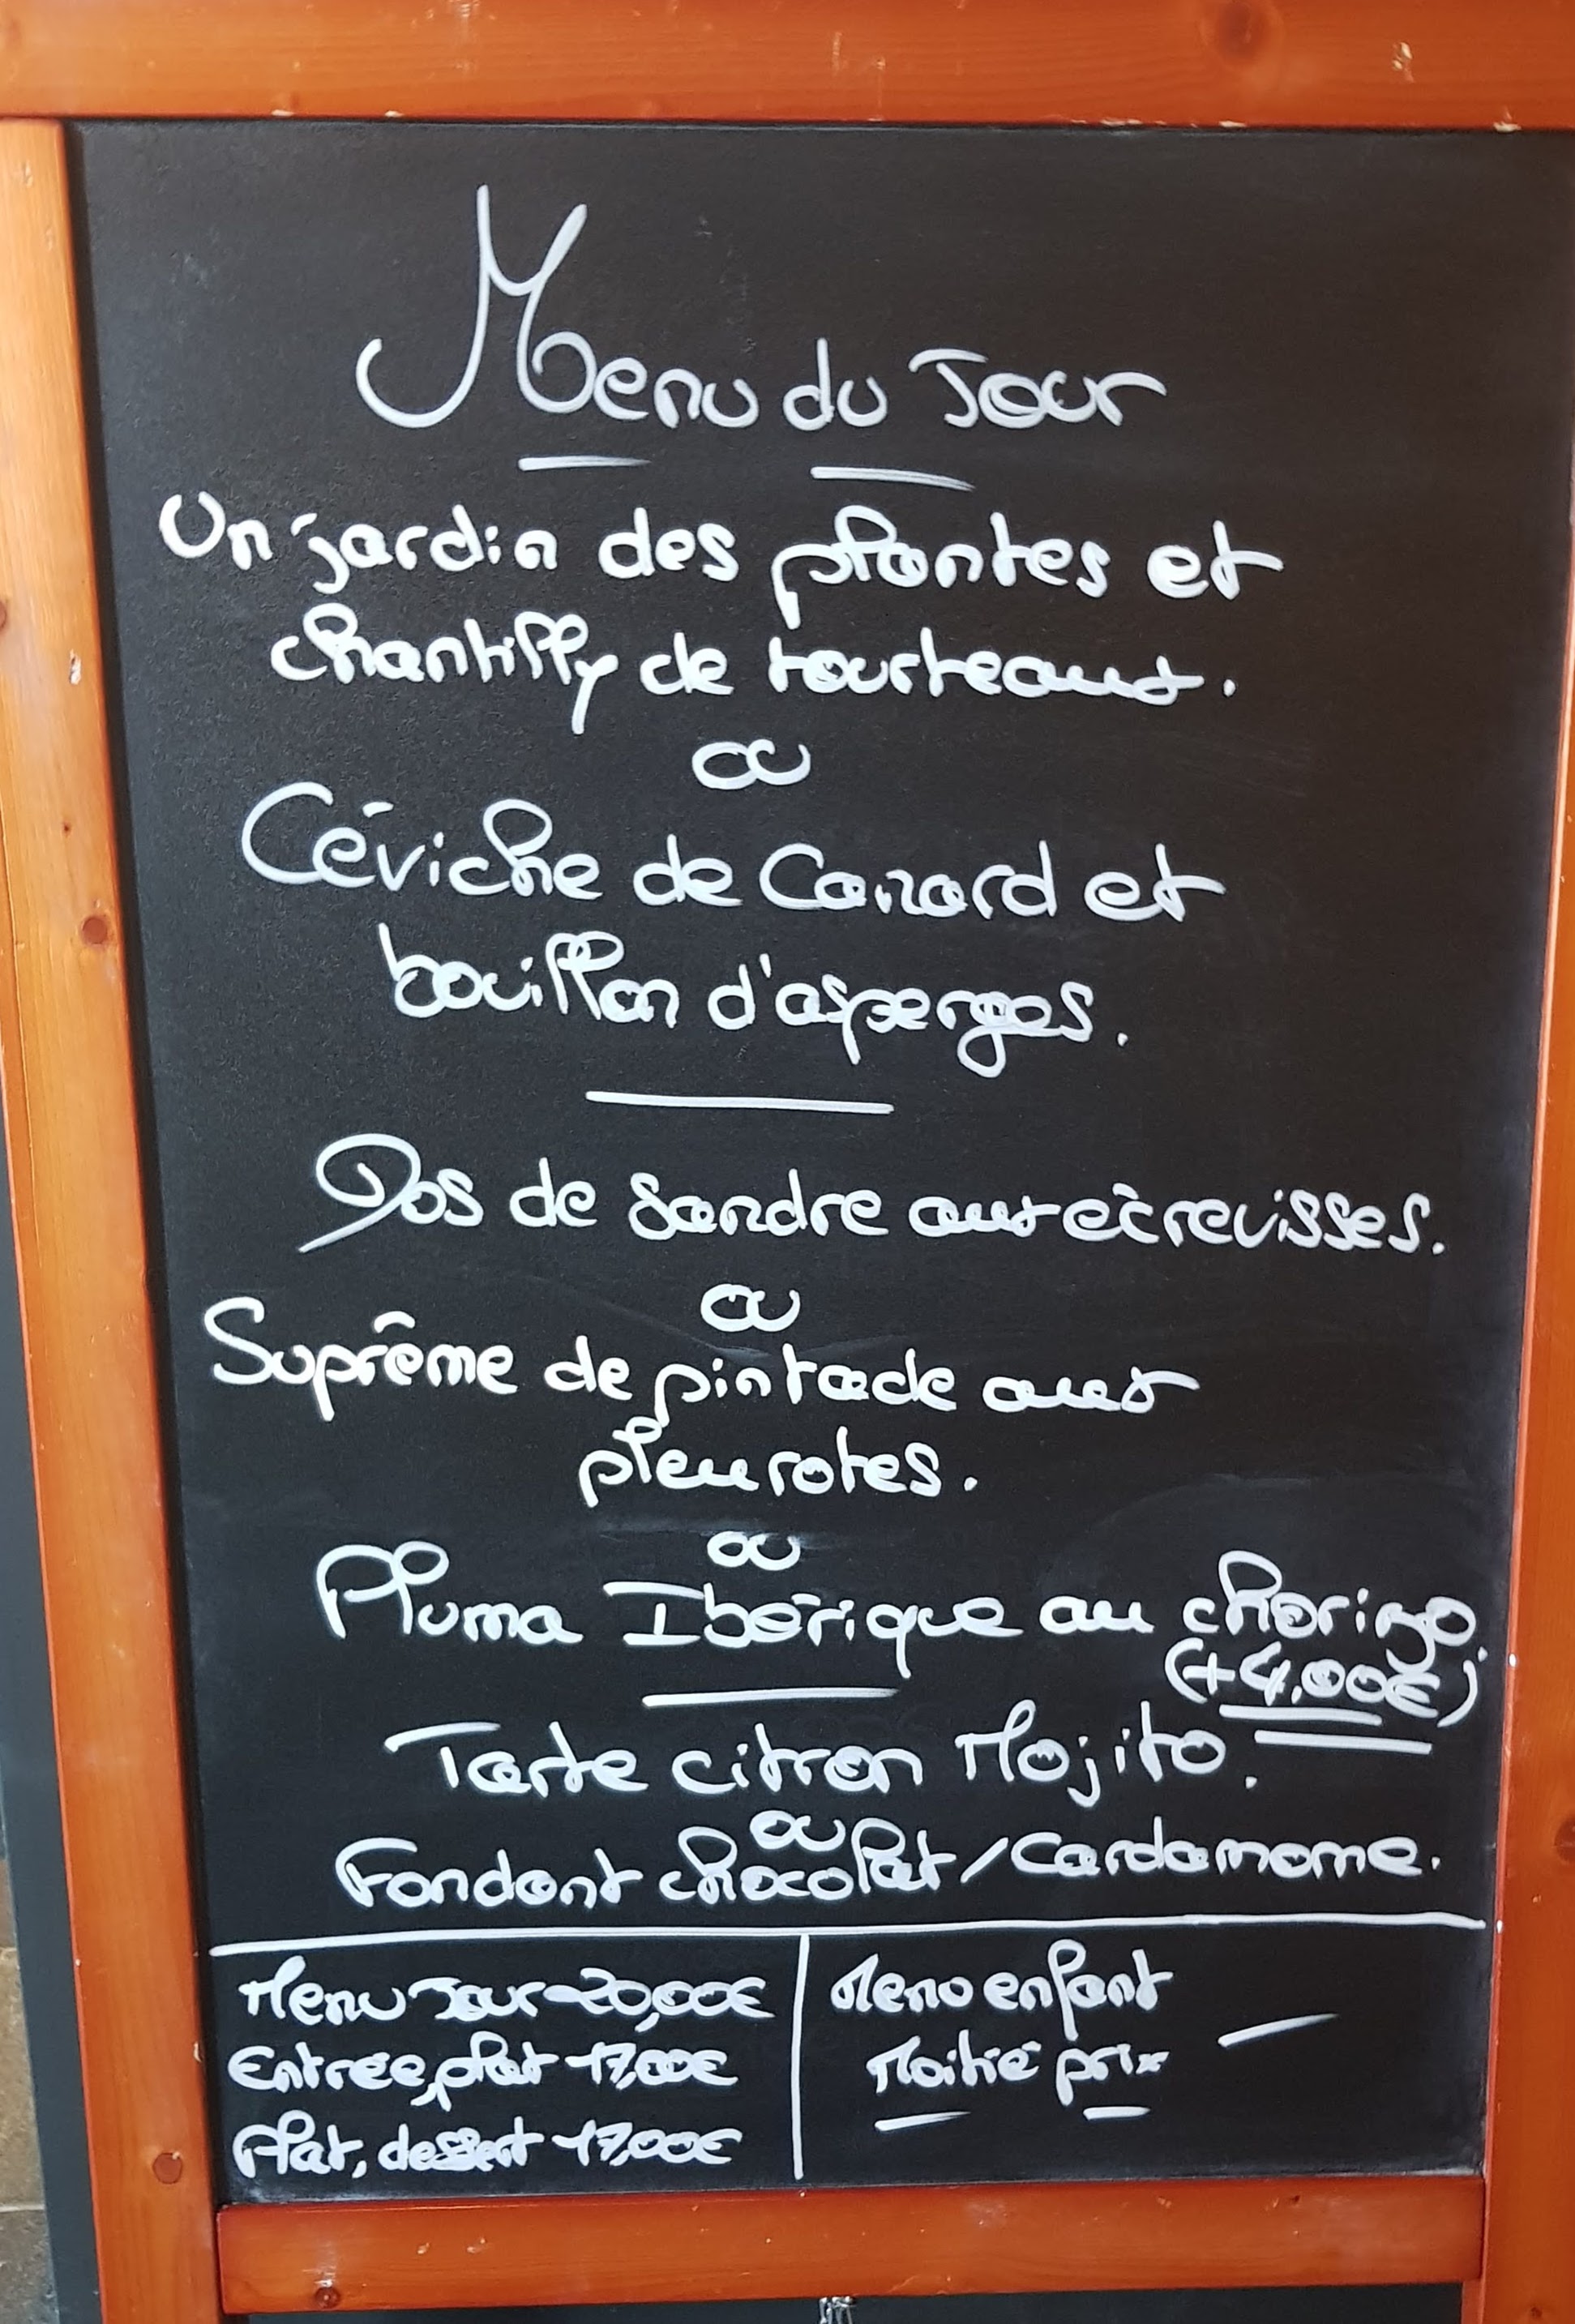 Menu du Jour
Un jardin des plantes et
chantilly de tourteaux.
ou
Céviche de Canard et
bouillon d'asperges.
Dos de sandre aux écrevisses.
ou
Suprême de pintade aux
pleurotes.
ou
Pluma Ibérique au chorizo.
(+4,00€)
Tarte citron Mojito.
ou
Fondant chocolat/Cardamome.
Menu Jour - 20,00€
Entrée, plat - 17,00€
Plat, dessert - 17,00€
Menu enfant
Moitié prix